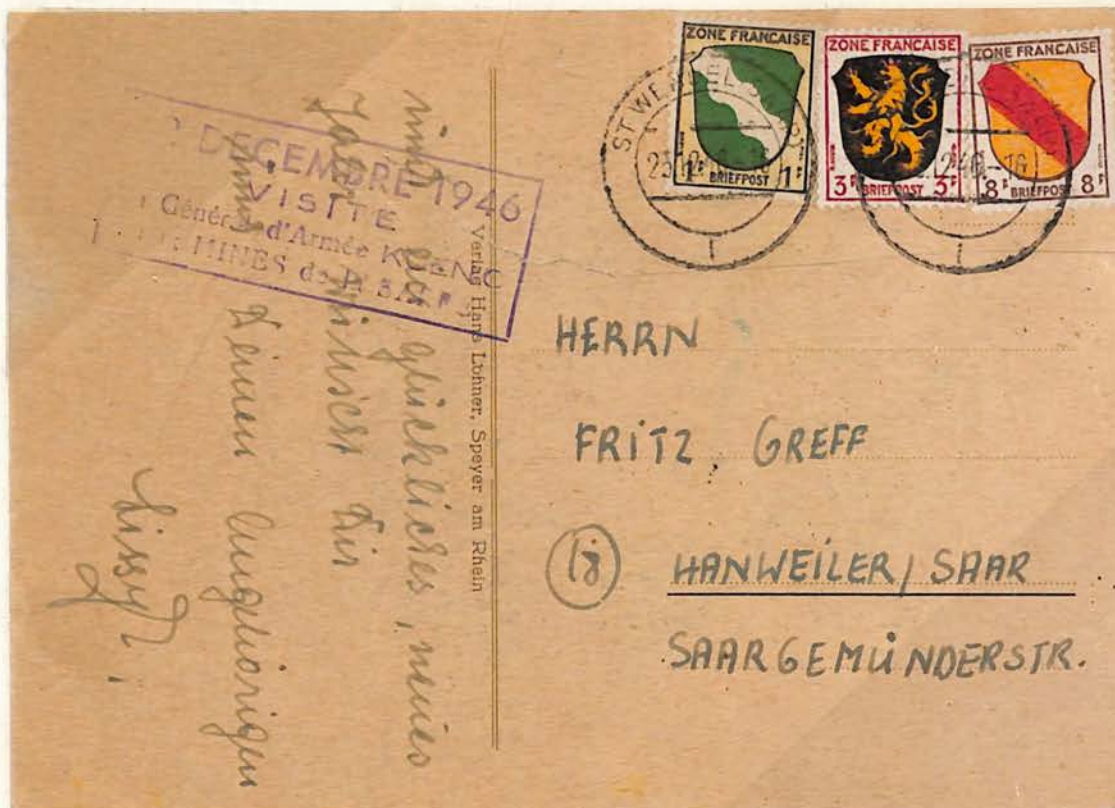 ZONE FRANCAISE
1F BRIEFPOST 1F
ZONE FRANCAISE
3F BRIEFPOST 3F
ZONE FRANCAISE
8F BRIEFPOST 8F
ST WENDEL
DECEMBRE 1946
VISITE
Général d'Armée KOENIG
MINES de la SARRE
Verlag Hans Lohner, Speyer am Rhein
und ein glückliches, neues
Jahr wünscht Dir
und Deinen Angehörigen
Lissy
HERRN
FRITZ GREFF
18 HANWEILER/SAAR
SAARGEMÜNDERSTR.